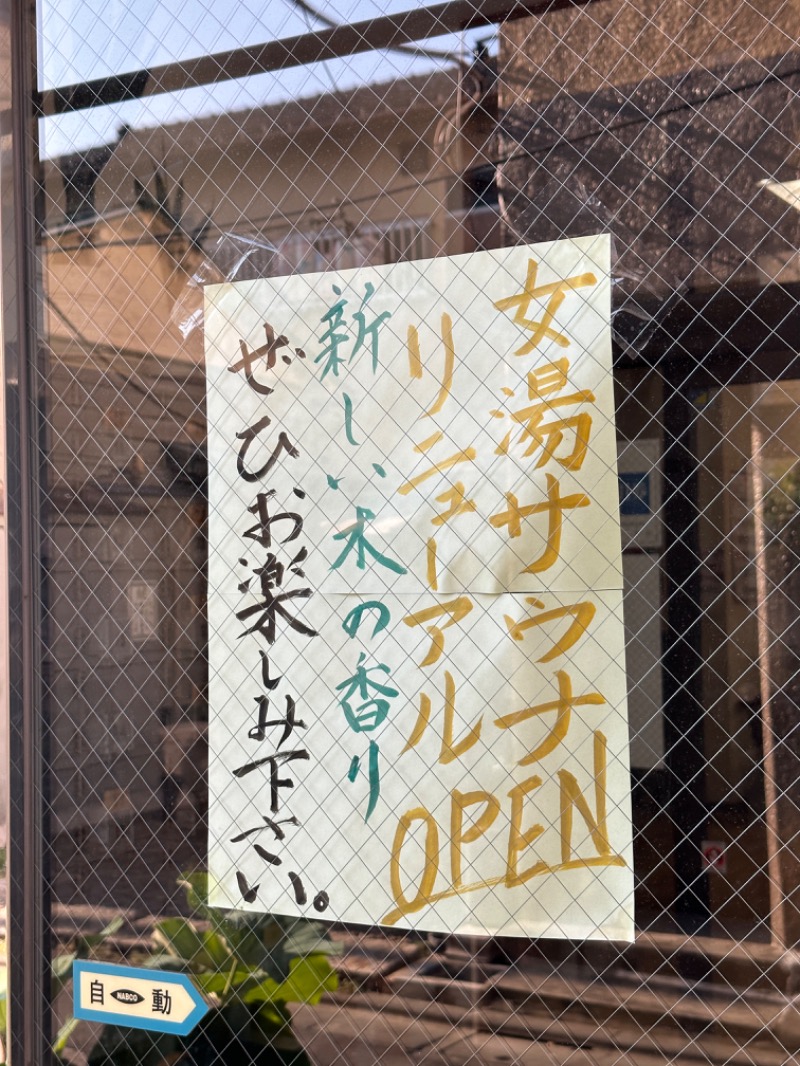 女湯サウナ
リニューアル
OPEN
新しい木の香り
ぜひお楽しみ下さい。
自 NABCO 動